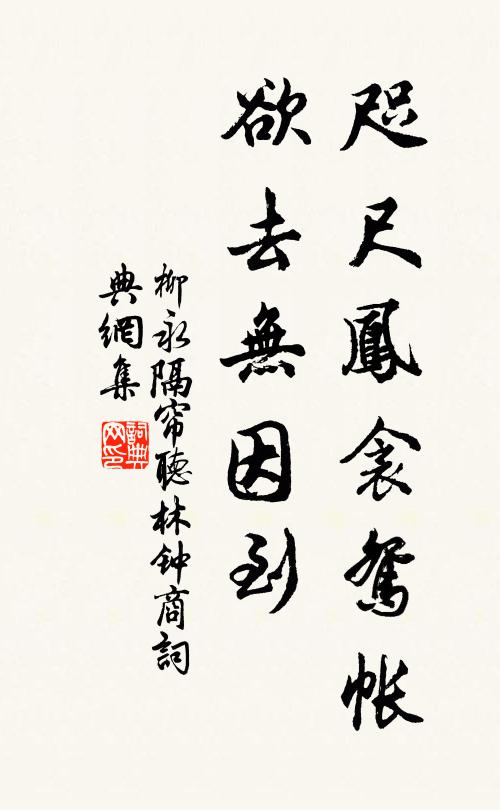 咫尺鳳衾鴛帳
欲去無因到
柳永隔帘聽林钟商詞
典網集
詞典
网印